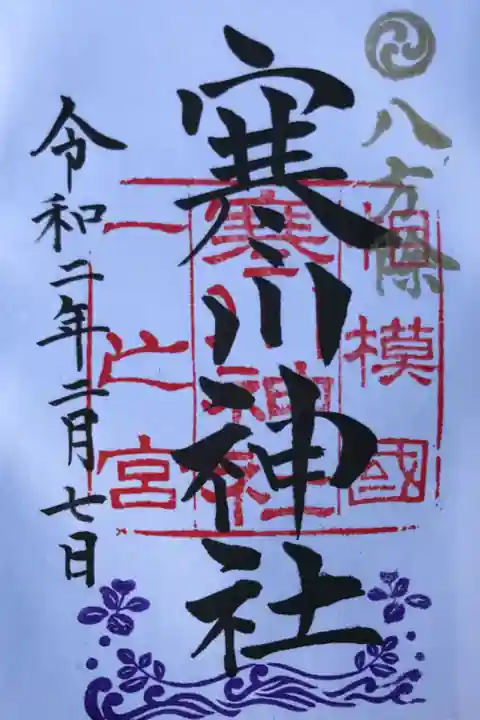 八方除
寒川神社
令和二年二月七日
相模國
寒川神社
一之宮